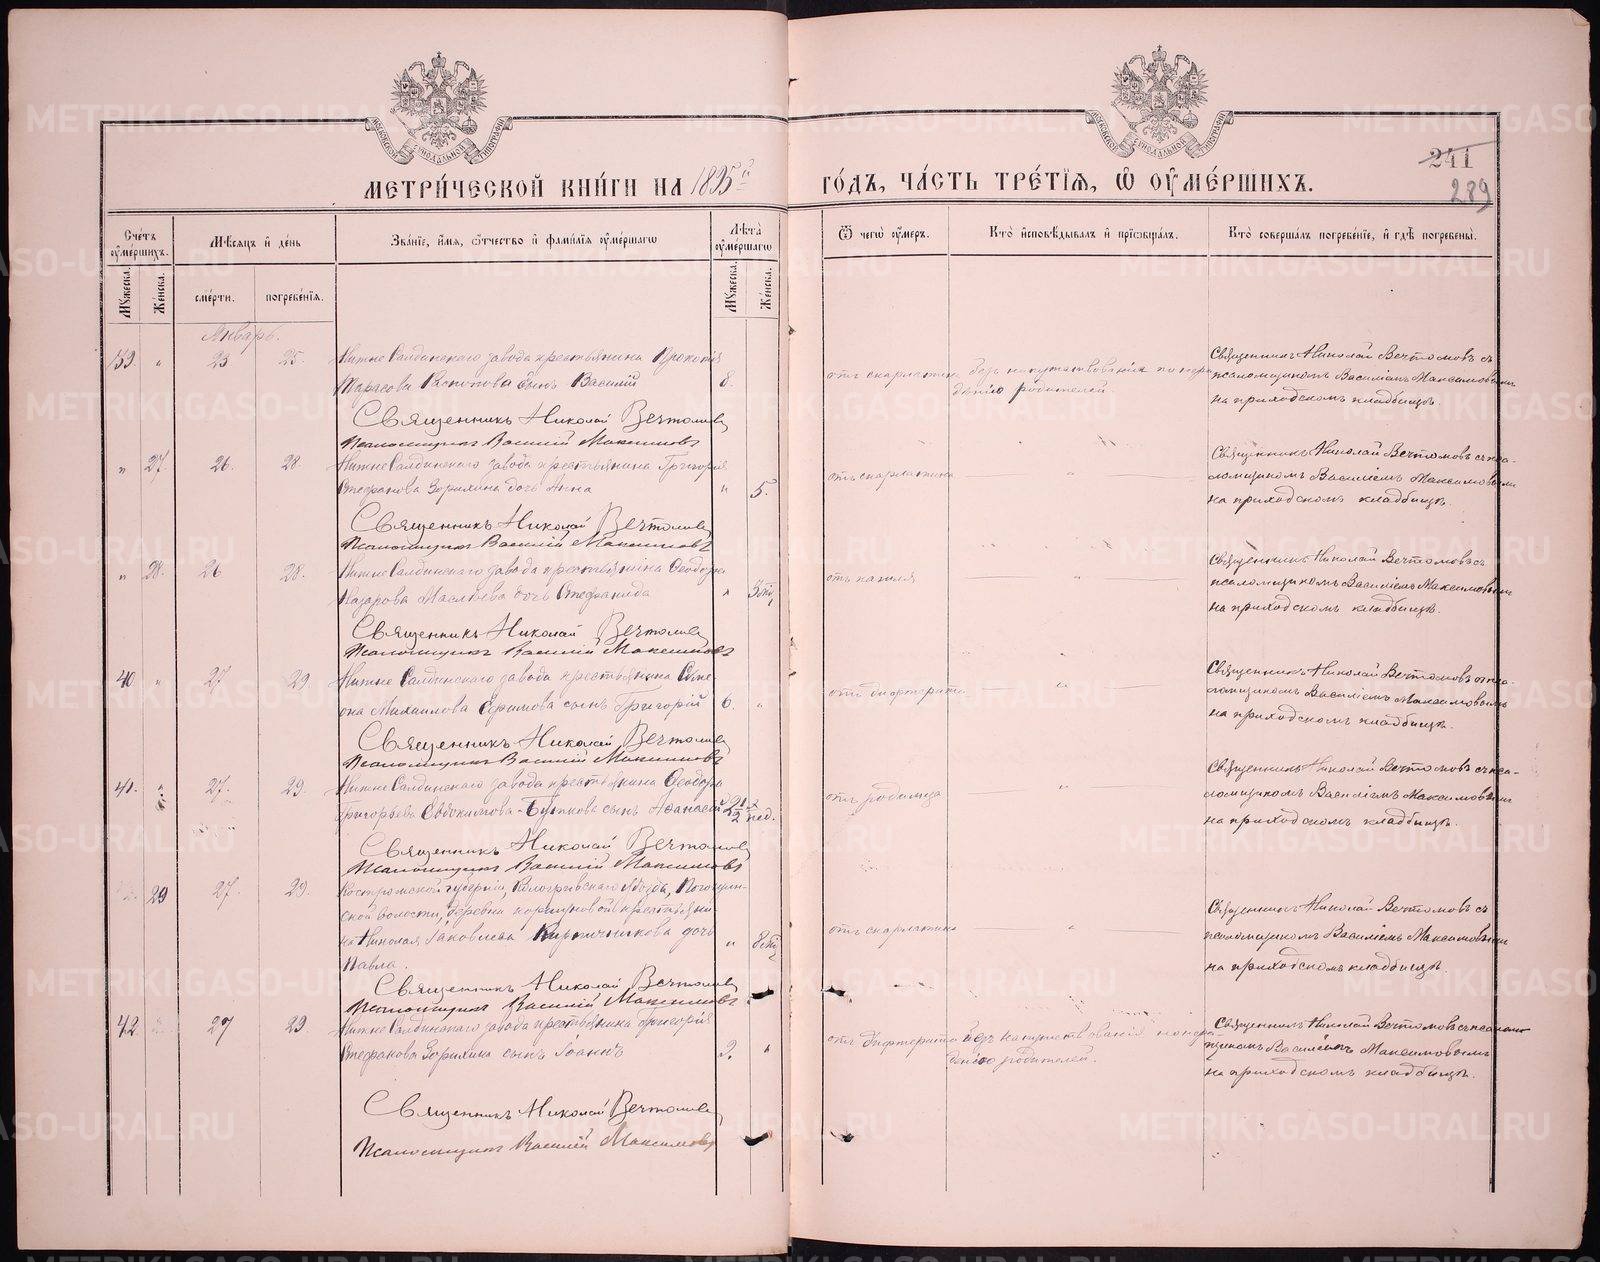 МЕТРИ́ЧЕСКОЙ КНИ́ГИ НА 1895й
ГО́ДЪ, ЧА́СТЬ ТРЕ́ТІѦ, Ѡ ОУМЕ́РШИХЪ.
241
289
Счетъ оумершихъ.
Мѣсяцъ и день
Званіе, имя, отчество и фамилія оумершаго
Лѣта оумершаго
Ѿ чего оумеръ.
Кто исповѣдывалъ и пріобщалъ.
Кто совершалъ погребеніе, и гдѣ погребены.
Мужеска.
Женска.
смерти.
погребенія.
Мужеска.
Женска.
Январь.
39 " 23 25. Нижне Салдинскаго завода крестьянина Прокопія
Тарасова сынъ Василій 8.
отъ скарлатина безъ напутствованія по нера
дѣнію родителей
Священникъ Николай Вечтомовъ съ
псаломщикомъ Василіемъ Максимовымъ
на приходскомъ кладбищѣ.
Священникъ Николай Вечтомовъ
Псаломщикъ Василій Максимовъ
" 27. 26. 28. Нижне Салдинскаго завода крестьянина Григорія
Стефанова Зорихина дочь Анна " 5.
отъ скарлатина "
Священникъ Николай Вечтомовъ съ пса-
ломщикомъ Василіемъ Максимовымъ
на приходскомъ кладбищѣ.
Священникъ Николай Вечтомовъ
Псаломщикъ Василій Максимовъ
" 28. 26 28. Нижне Салдинскаго завода крестьянина Ѳеодора
Назарова дочь Стефанида "
отъ кашля "
Священникъ Николай Вечтомовъ съ
псаломщикомъ Василіемъ Максимовымъ
на приходскомъ кладбищѣ.
Священникъ Николай Вечтомовъ
Псаломщикъ Василій Максимовъ
40 " 27 29. Нижне Салдинскаго завода крестьянина Симе-
она Михаилова Ефимова сынъ Григорій 6. "
отъ дифтерита "
Священникъ Николай Вечтомовъ съ пса-
ломщикомъ Василіемъ Максимовымъ
на приходскомъ кладбищѣ.
Священникъ Николай Вечтомовъ
Псаломщикъ Василій Максимовъ
41. " 27. 29. Нижне Салдинскаго завода крестьянина Ѳеодора
Григорьева Евдокимова сынъ Аѳанасій 2 1/2 нед.
отъ родимца "
Священникъ Николай Вечтомовъ съ пса-
ломщикомъ Василіемъ Максимовымъ
на приходскомъ кладбищѣ.
Священникъ Николай Вечтомовъ
Псаломщикъ Василій Максимовъ
29 27. 29. Костромской губерніи, Кологривскаго уѣзда,
ской волости, деревни крестьяни-
на Николая Іаковлева Кирпичникова дочь
Павла. "
отъ скарлатина "
Священникъ Николай Вечтомовъ съ
псаломщикомъ Василіемъ Максимовымъ
на приходскомъ кладбищѣ.
Священникъ Николай Вечтомовъ
Псаломщикъ Василій Максимовъ
42 27 29. Нижне Салдинскаго завода крестьянина Григорія
Стефанова Зорихина сынъ Іоаннъ 2. "
отъ дифтерита безъ напутствованія по нера
дѣнію родителей.
Священникъ Николай Вечтомовъ съ псалом
щикомъ Василіемъ Максимовымъ
на приходскомъ кладбищѣ.
Священникъ Николай Вечтомовъ
Псаломщикъ Василій Максимовъ
METRIKI.GASO-URAL.RU